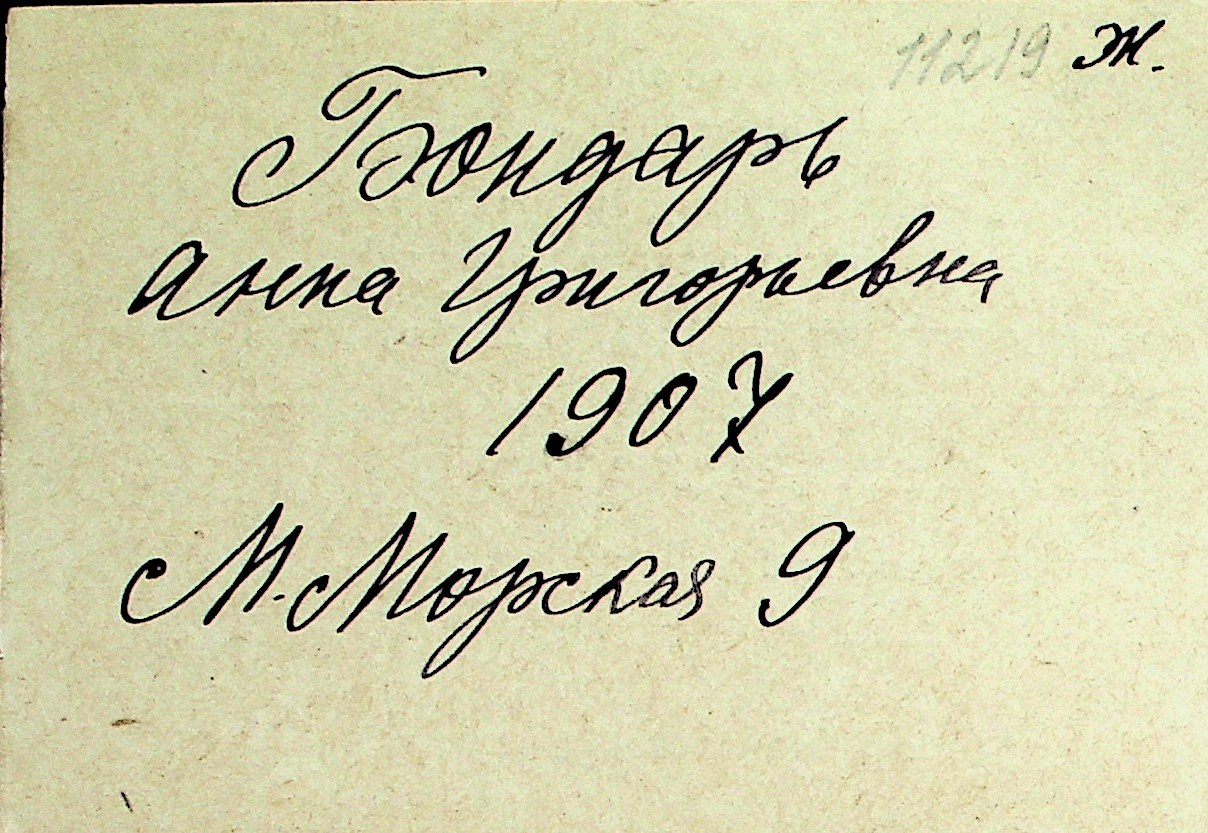 11219 Ж.
Бондарь
Анна Григорьевна
1907
М. Морская 9